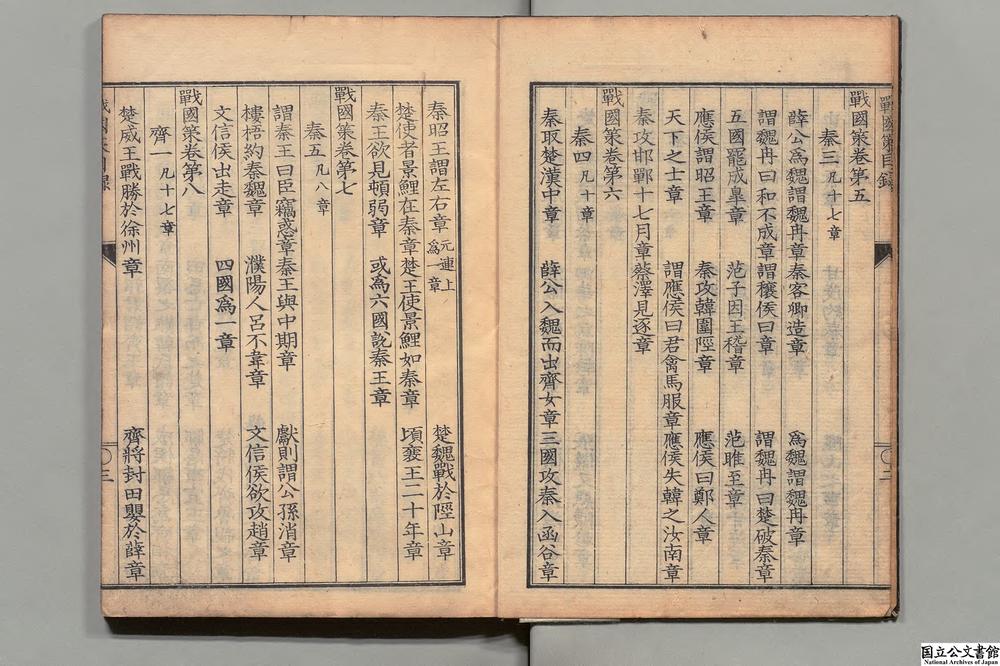 戰國策目錄
戰國策卷第五
秦三 凡十七章
薛公爲魏謂魏冉章 秦客卿造章 爲魏謂魏冉章
謂魏冉曰和不成章 謂穰侯曰章 謂魏冉曰楚破秦章
五國罷成皐章 范子因王稽章 范雎至章
應侯謂昭王章 秦攻韓圍陘章 應侯曰鄭人章
天下之士章 謂應侯曰君禽馬服章 應侯失韓之汝南章
秦攻邯鄲十七月章 蔡澤見逐章
戰國策卷第六
秦四 凡十章
秦取楚漢中章 薛公入魏而出齊女章 三國攻秦入函谷章
秦昭王謂左右章 元連上爲一章 楚魏戰於陘山章
楚使者景鯉在秦章 楚王使景鯉如秦章 頃襄王二十年章
秦王欲見頓弱章 或爲六國說秦王章
戰國策卷第七
秦五 凡八章
謂秦王曰臣竊惑章 秦王與中期章 獻則謂公孫消章
樓梧約秦魏章 濮陽人呂不韋章 文信侯欲攻趙章
文信侯出走章 四國爲一章
戰國策卷第八
齊一 凡十七章
楚威王戰勝於徐州章 齊將封田嬰於薛章
三
国立公文書館
National Archives of Japan